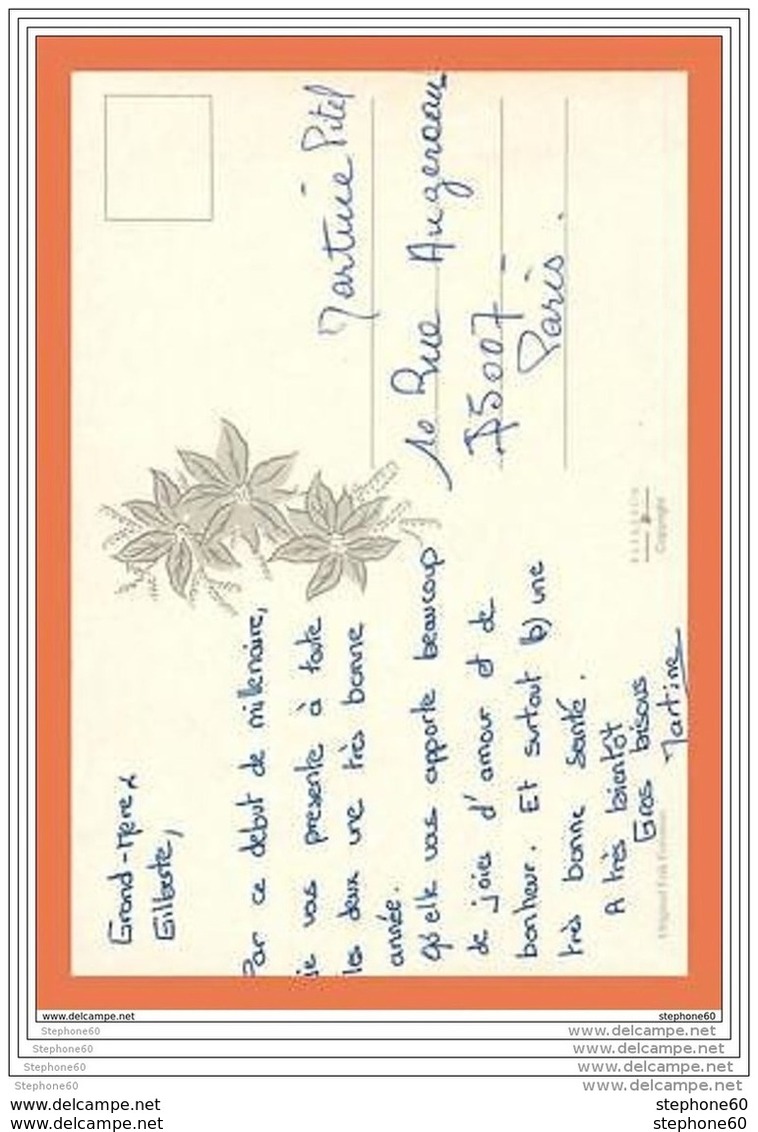 Grand-Mère &
Gilberte,
Par ce debut de millenaire,
je vous presente à toute
les deux une très bonne
année.
Qu'elle vous apporte beaucoup
de joies d'amour et de
bonheur. Et surtout b) une
très bonne santé.
A très bientôt
Gros bisous
Martine
Martine Pitel
10 Rue Augereau
75007 -
Paris.
Copyright
www.delcampe.net
stephone60
Stephone60
www.delcampe.net
Stephone60
www.delcampe.net
Stephone60
www.delcampe.net
Stephone60
www.delcampe.net
stephone60
stephone60
www.delcampe.net
stephone60